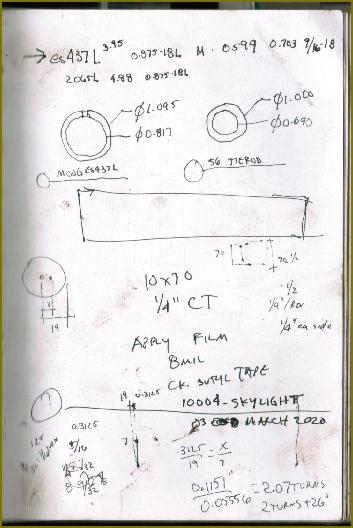 → es437L 3.95 0.875-18L M .0599 0.703 9/16-18
2065L 4.88 0.875-18L
Ø1.095
Ø0.817
Ø1.000
Ø0.690
MOOG ES437L
S6 TIEROD
70
70 1/2
10x70
1/4" CT
1/2
1/8"/REV
1/4" ea side
19
APPLY FILM
8MIL
CK. BUTYL TAPE
19 0.3125
10004-SKYLIGHT
03 MARCH 2020
0.3125
5/16
7
3125/19 = X/7
0.1151/0.05556 = 2.07 TURNS
2 TURNS + 26°